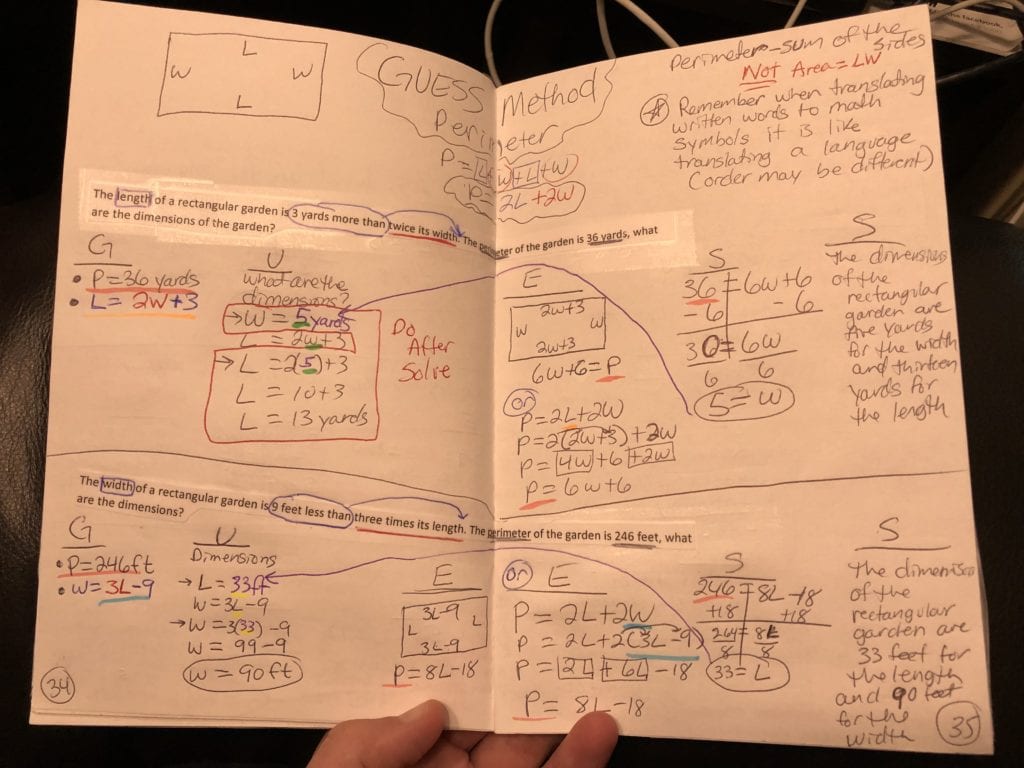 the facebook.
L
W W
L
GUESS Method
Perimeter
P= L+W+L+W
P= 2L +2W
Perimeter-sum of the sides
Not Area = LW
Remember when translating
written words to math
symbols it is like
translating a language
(order may be different)
The length of a rectangular garden is 3 yards more than twice its width. The perimeter of the garden is 36 yards, what
are the dimensions of the garden?
G
• P=36 yards
• L= 2W+3
U
what are the
dimensions?
→W = 5 yards
L = 2W+3
→L =2(5)+3
L = 10+3
L = 13 yards
Do
After
Solve
E
2W+3
W W
2W+3
6W+6=P
or
P=2L+2W
P=2(2W+3)+2W
P= 4W+6+2W
P= 6W+6
S
36=6W+6
-6 -6
30=6W
6 6
5=W
S
The dimensions
of the
rectangular
garden are
five yards
for the width
and thirteen
yards for
the length
The width of a rectangular garden is 9 feet less than three times its length. The perimeter of the garden is 246 feet, what
are the dimensions?
G
• P=246ft
• W=3L-9
U
Dimensions
→ L = 33ft
W=3L-9
→W=3(33)-9
W= 99-9
W= 90ft
E
3L-9
L L
3L-9
P=8L-18
or E
P= 2L+2W
P= 2L+2(3L-9)
P= 2L + 6L -18
P= 8L-18
S
246=8L-18
+18 +18
264=8L
8 8
33=L
S
The dimension
of the
rectangular
garden are
33 feet for
the length
and 90 feet
for the
width
34
35